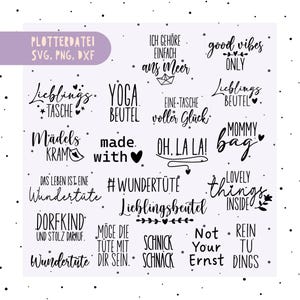 PLOTTERDATEI
SVG, PNG, DXF
ICH GEHÖRE
EINFACH
ans Meer
good vibes
ONLY
Lieblings-
TASCHE
YOGA
BEUTEL
EINE-TASCHE
voller Glück
Lieblings
BEUTEL
Mädels
KRAM
made
with
OH, LA LA!
MOMMY
bag
DAS LEBEN IST EINE
Wundertüte
#WUNDERTÜTE
Lieblingsbeutel
LOVELY
things
INSIDE
DORFKIND
UND STOLZ DARAUF.
MÖGE DIE
TÜTE MIT
DIR SEIN.
SCHNICK
SCHNACK
Not
Your
Ernst
REIN
TU
DINGS
Wundertüte